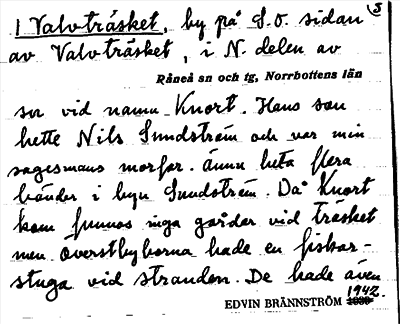 1 Valvträsket, by på S.O. sidan 3
av Valvträsket, i N. delen av
Råneå sn och tg, Norrbottens län
sa vid namn Knort. Hans son
hette Nils Sundström och var min
sagesmans morfar. Ännu heta flera
bönder i byn Sundström. Då Knort
kom funnos inga gårdar vid träsket
men Överstbyborna hade en fiskar-
stuga vid stranden. De hade även
1942.
EDVIN BRÄNNSTRÖM 1939